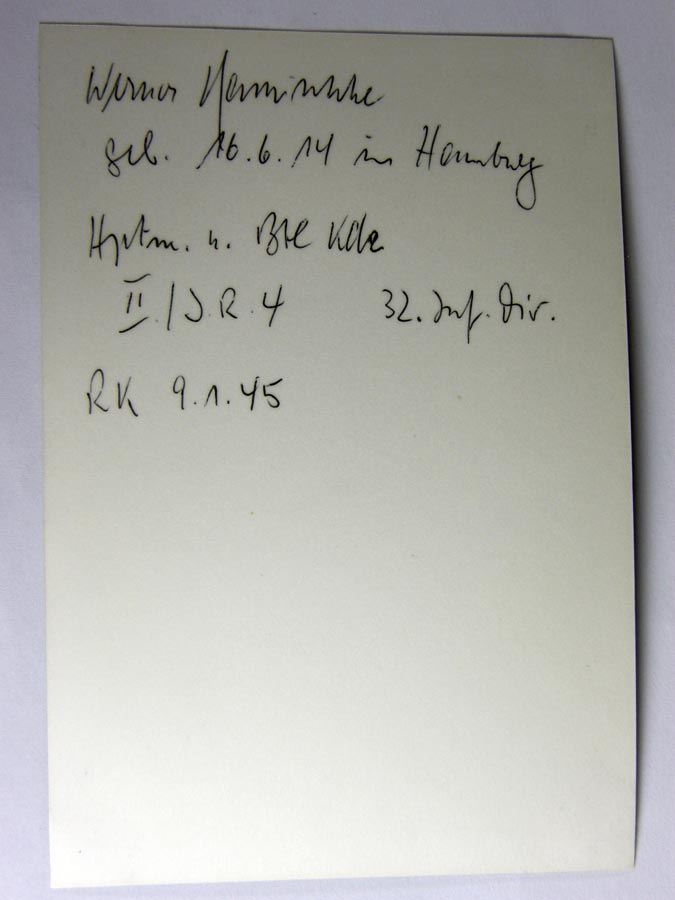 Werner
geb. 16.6.14 in Hamburg
Hptm. u. Btl Kdr
II./J.R. 4 32. Inf. Div.
RK 9.1.45